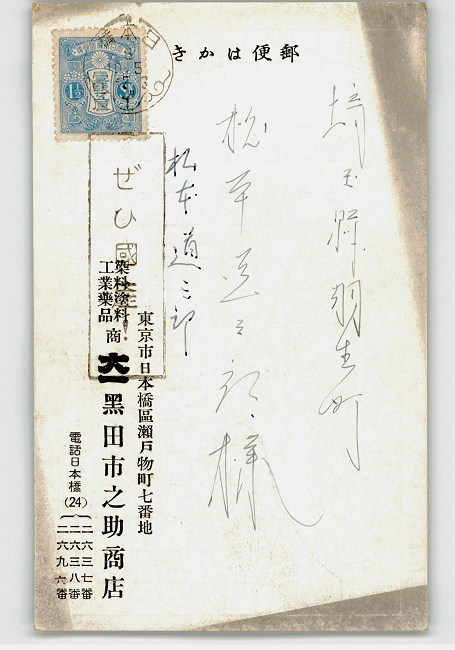 郵便はかき
埼玉縣羽生町
松本道三郎様
松本道三郎
ぜひ國産!
東京市日本橋區瀬戸物町七番地
染料塗料
工業藥品
商
大一
黑田市之助商店
電話日本橋(24)
二六三七番
二六三八番
二六九六番
1½ Sn